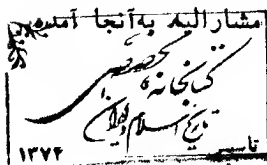 مشارالیه به آنجا آمده
کتابخانه تخصصی
تاریخ اسلام و ایران
تاسیس ۱۳۷۴